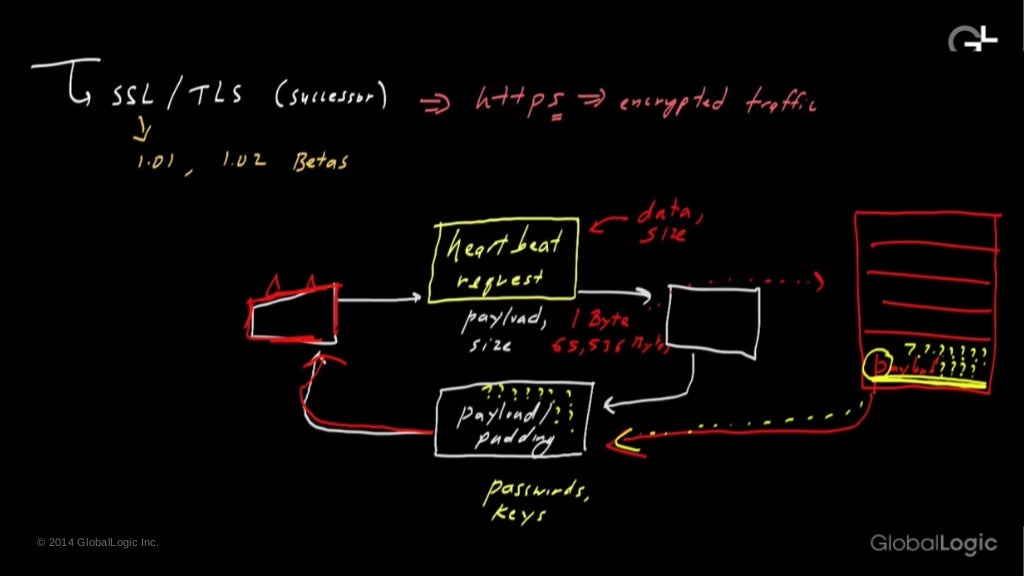 SSL / TLS (successor) ⇒ https ⇒ encrypted traffic
1.01, 1.02 Betas
data,
size
heartbeat
request
payload, 1 Byte
size 65,536 Bytes
? ? ? ? ? ? ?
payload ? ? ? ?
? ? ? ? ? ?
payload/ ? ?
padding
passwords,
keys
© 2014 GlobalLogic Inc.
GlobalLogic